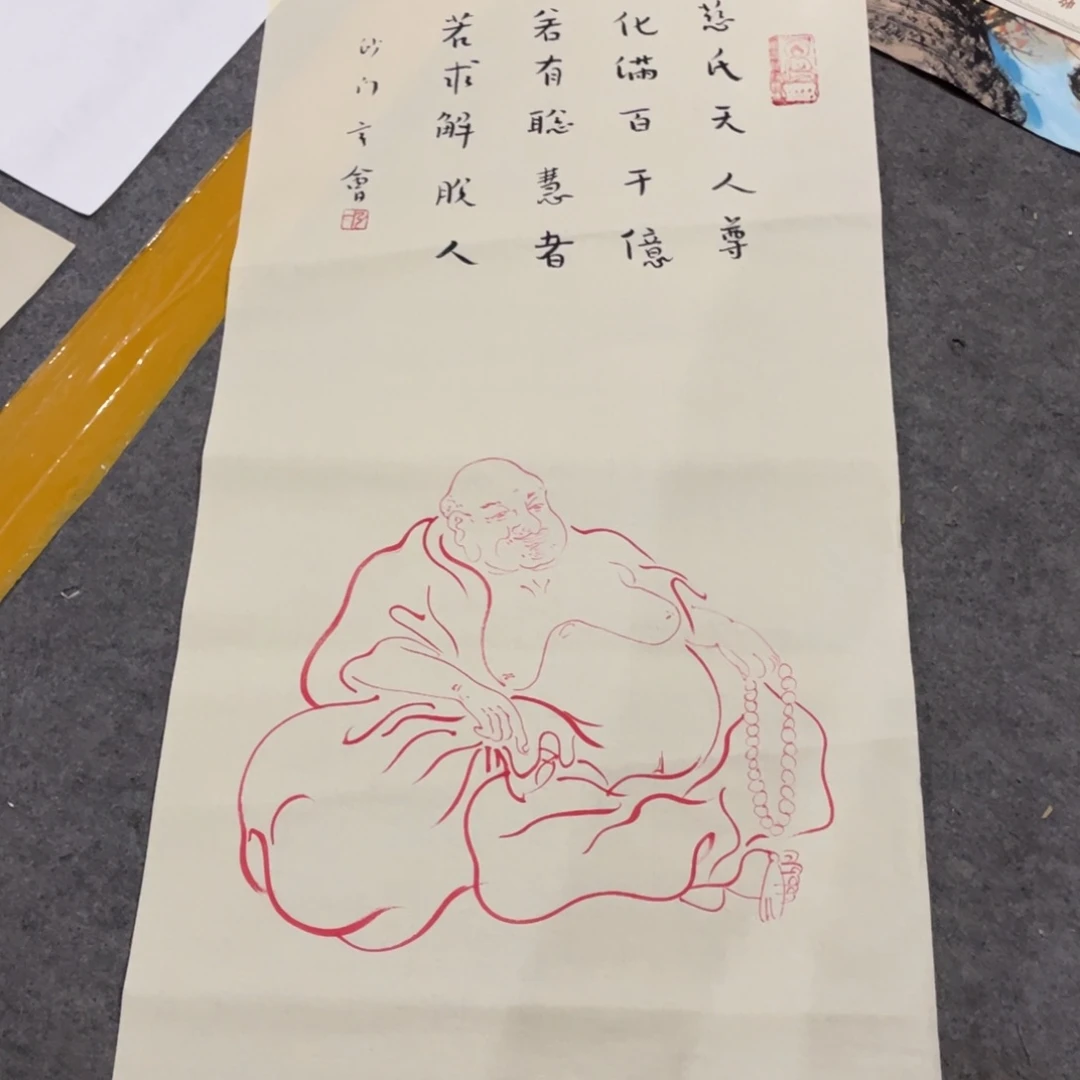 慈氏天人尊
化滿百千億
若有聡慧者
若求解脫人
沙門玄會